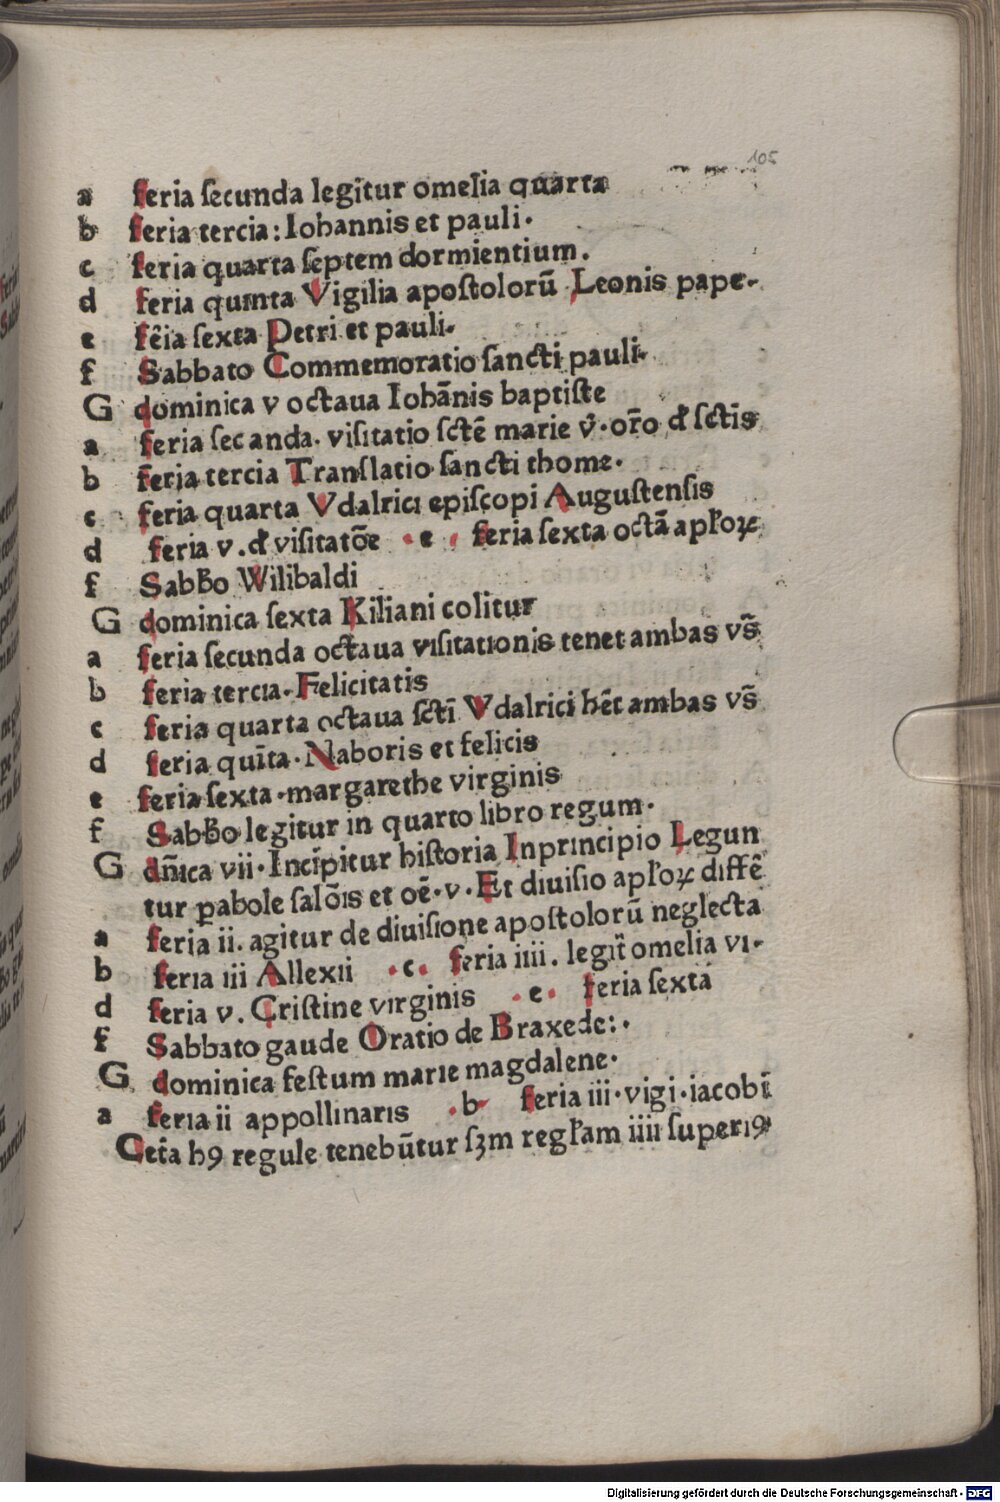 105
a feria ſecunda legitur omelia quarta
b feria tercia: Iohannis et pauli.
c feria quarta ſeptem dormientium.
d feria quinta Vigilia apoſtolorū Leonis pape.
e fēia ſexta Petri et pauli.
f Sabbato Commemoratio ſancti pauli.
G dominica v octaua Iohānis baptiſte
a feria ſecanda. viſitatio ſctē marie v̄. or̄o đ ſctīs
b feria tercia Tranſlatio ſancti thome.
c feria quarta Vdalrici epiſcopi Auguſtenſis
d feria v. đ viſitatōe . e . feria ſexta octā apłoꝝ
f Sabƀo Wilibaldi
G dominica ſexta Kiliani colitur
a feria ſecunda octaua viſitationis tenet ambas vs̄
b feria tercia. Felicitatis
c feria quarta octaua ſctī Vdalrici hēt ambas vs̄
d feria quīta. Naboris et felicis
e feria ſexta .margarethe virginis
f Sabƀo legitur in quarto libro regum.
G dn̄ica vii. Incipitur hiſtoria Inprincipio Legun
tur ꝑabole ſalōis et oē. v. Et diuiſio apłoꝝ diffē
a feria ii. agitur de diuiſione apoſtolorū neglecta
b feria iii Allexii .c. feria iiii. legit̄ omelia vi.
d feria v. Criſtine virginis . e . feria ſexta
f Sabbato gaude Oratio de Braxede:.
G dominica feſtum marie magdalene.
a feria ii appollinaris . b . feria iii. vigi. iacobī
Cet̄a hꝰ regule tenebūtur ſꝫm regłam iiii ſuperiꝰ
Digitalisierung gefördert durch die Deutsche Forschungsgemeinschaft - DFG